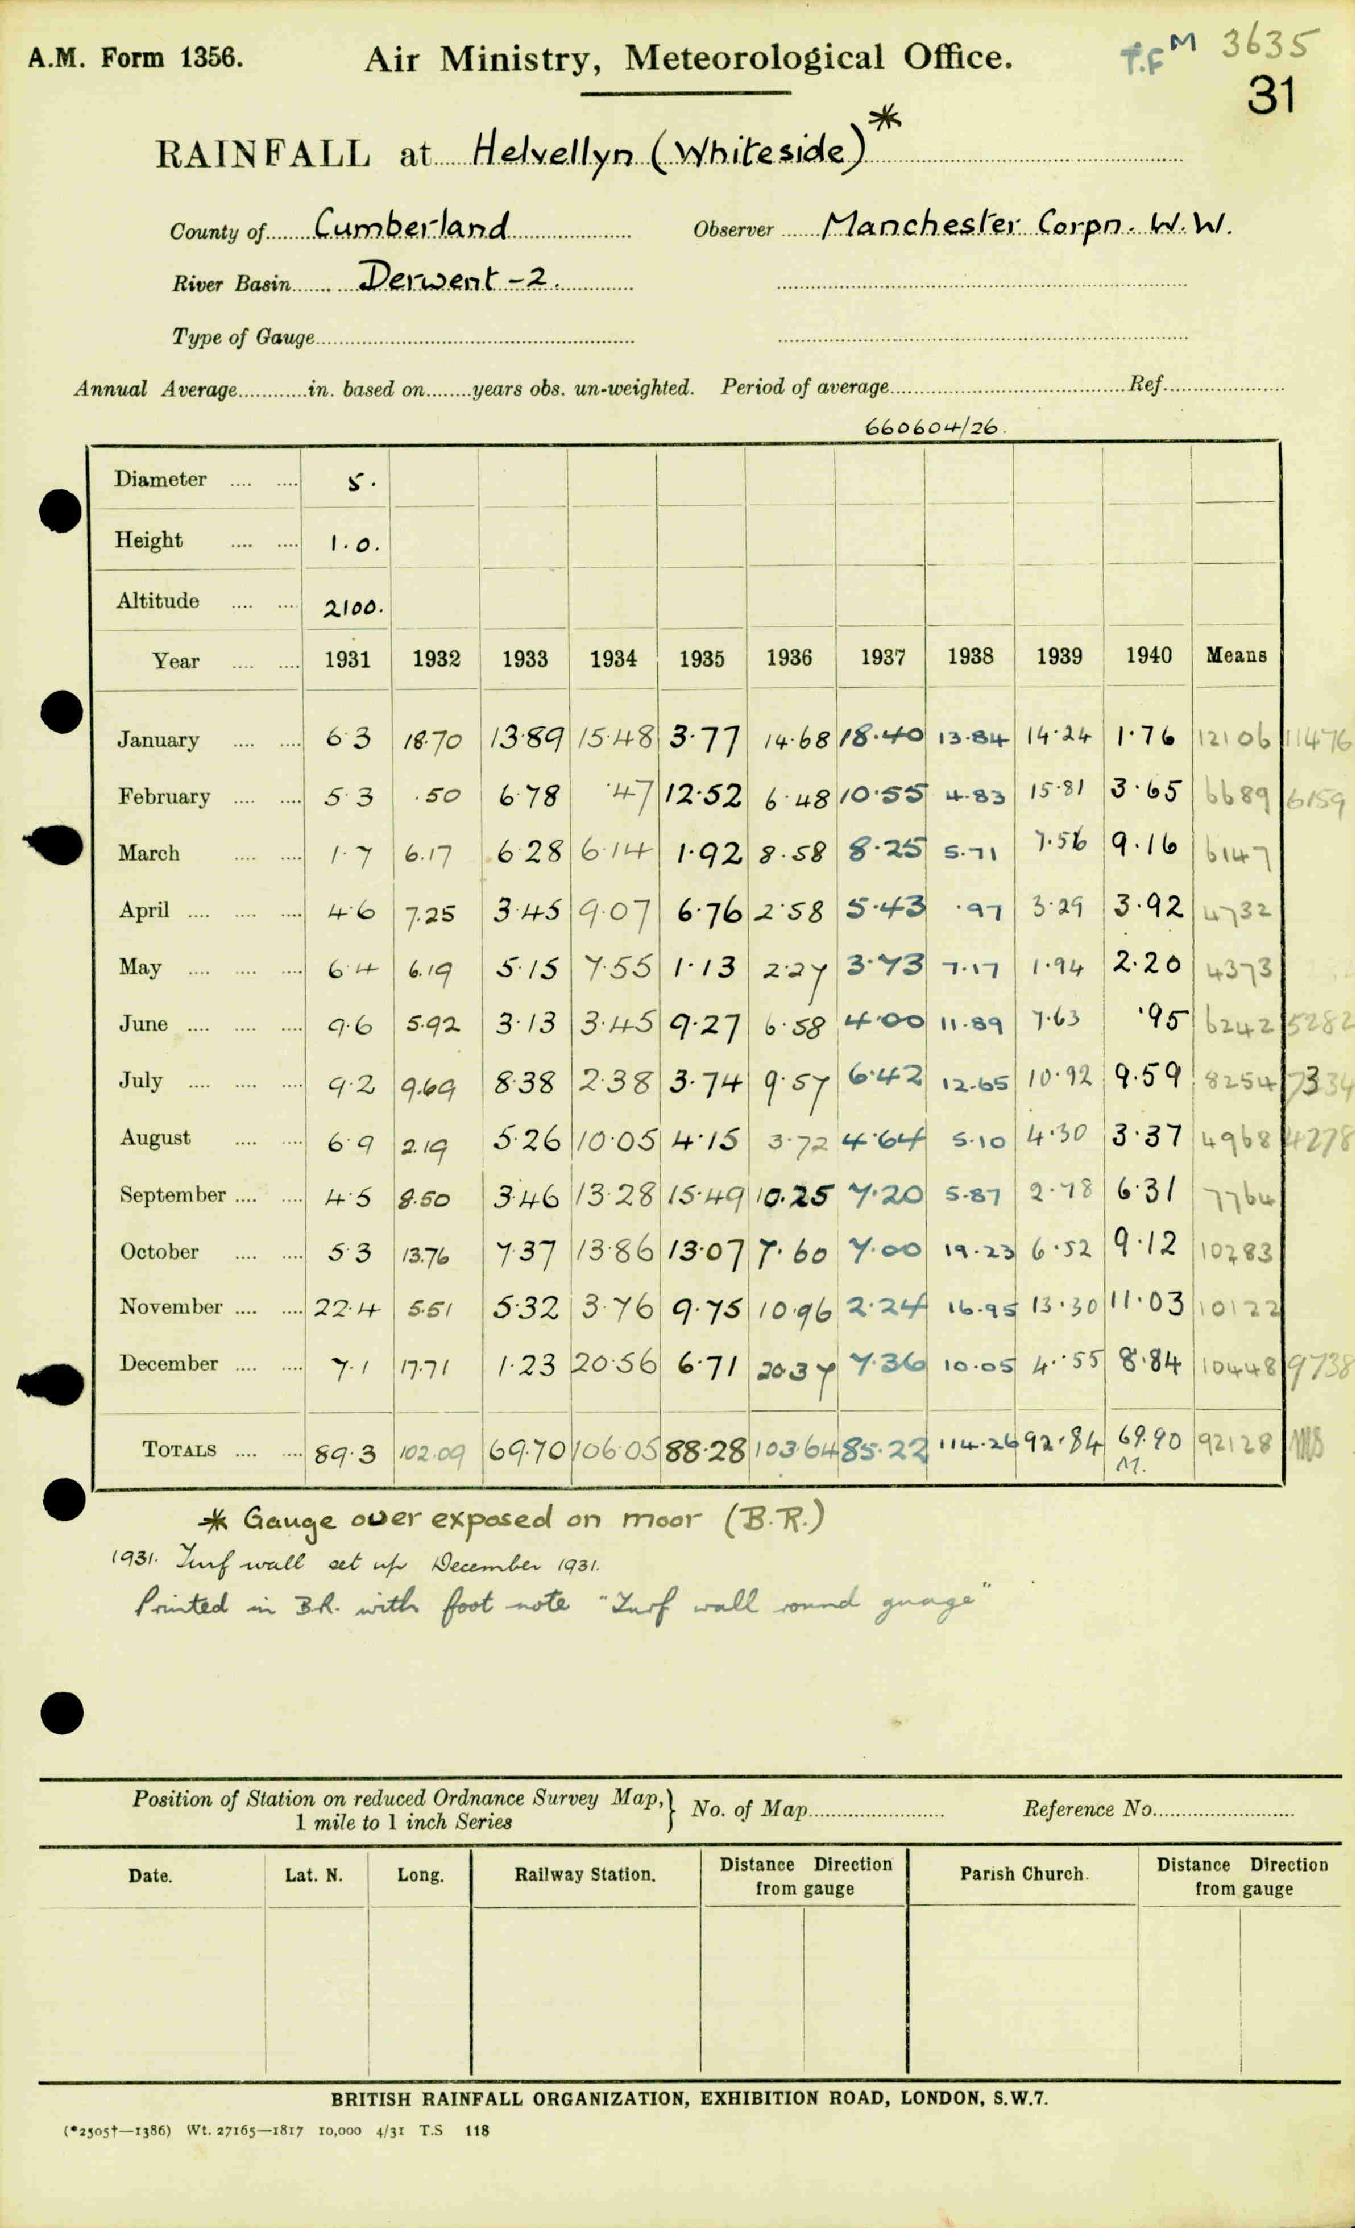 A.M. Form 1356. Air Ministry, Meteorological Office. T.F M 3635
31
RAINFALL at Helvellyn (Whiteside) *
County of Cumberland Observer Manchester Corpn. W.W.
River Basin Derwent - 2.
Type of Gauge
Annual Average in. based on years obs. un-weighted. Period of average Ref.
660604/26.
Diameter 5.
Height 1.0.
Altitude 2100.
Year 1931 1932 1933 1934 1935 1936 1937 1938 1939 1940 Means
January 6 3 18.70 13.89 15.48 3.77 14.68 18.40 13.84 14.24 1.76 12106 11476
February 5 3 .50 6.78 .47 12.52 6.48 10.55 4.83 15.81 3.65 6689 6159
March 1.7 6.17 6 28 6.14 1.92 8.58 8.25 5.71 7.56 9.16 6147
April 4.6 7.25 3.45 9.07 6.76 2.58 5.43 .97 3.29 3.92 4732
May 6.4 6.19 5.15 7.55 1.13 2.27 3.73 7.17 1.94 2.20 4373
June 9.6 5.92 3.13 3.45 9.27 6.58 4.00 11.89 7.63 .95 6242 5282
July 9.2 9.69 8.38 2.38 3.74 9.57 6.42 12.65 10.92 9.59 8254 7334
August 6.9 2.19 5.26 10.05 4.15 3.72 4.64 5.10 4.30 3.37 4968 4278
September 4.5 8.50 3.46 13.28 15.49 10.25 7.20 5.87 2.78 6.31 7764
October 5.3 13.76 7.37 13.86 13.07 7.60 7.00 19.23 6.52 9.12 10283
November 22.4 5.51 5.32 3.76 9.75 10.96 2.24 16.95 13.30 11.03 10122
December 7.1 17.71 1.23 20.56 6.71 20.37 7.36 10.05 4.55 8.84 10448 9738
TOTALS 89.3 102.09 69.70 106.05 88.28 103.64 85.22 114.26 92.84 69.90 92128
M.
* Gauge over exposed on moor (B.R.)
1931. Turf wall set up December 1931.
Printed in B.R. with foot note "Turf wall round guage"
Position of Station on reduced Ordnance Survey Map, } No. of Map Reference No.
1 mile to 1 inch Series
Date. Lat. N. Long. Railway Station. Distance Direction Parish Church. Distance Direction
from gauge from gauge
BRITISH RAINFALL ORGANIZATION, EXHIBITION ROAD, LONDON, S.W.7.
(*2505†—1386) Wt. 27165—1817 10,000 4/31 T.S 118